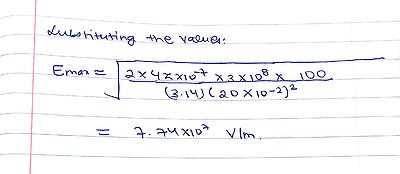 Substituting the values:
Emax = √ 2×4π×10⁻⁷ ×3×10⁸ × 100
(3.14) (20 × 10-2)²
= 7.74×10² V/m.